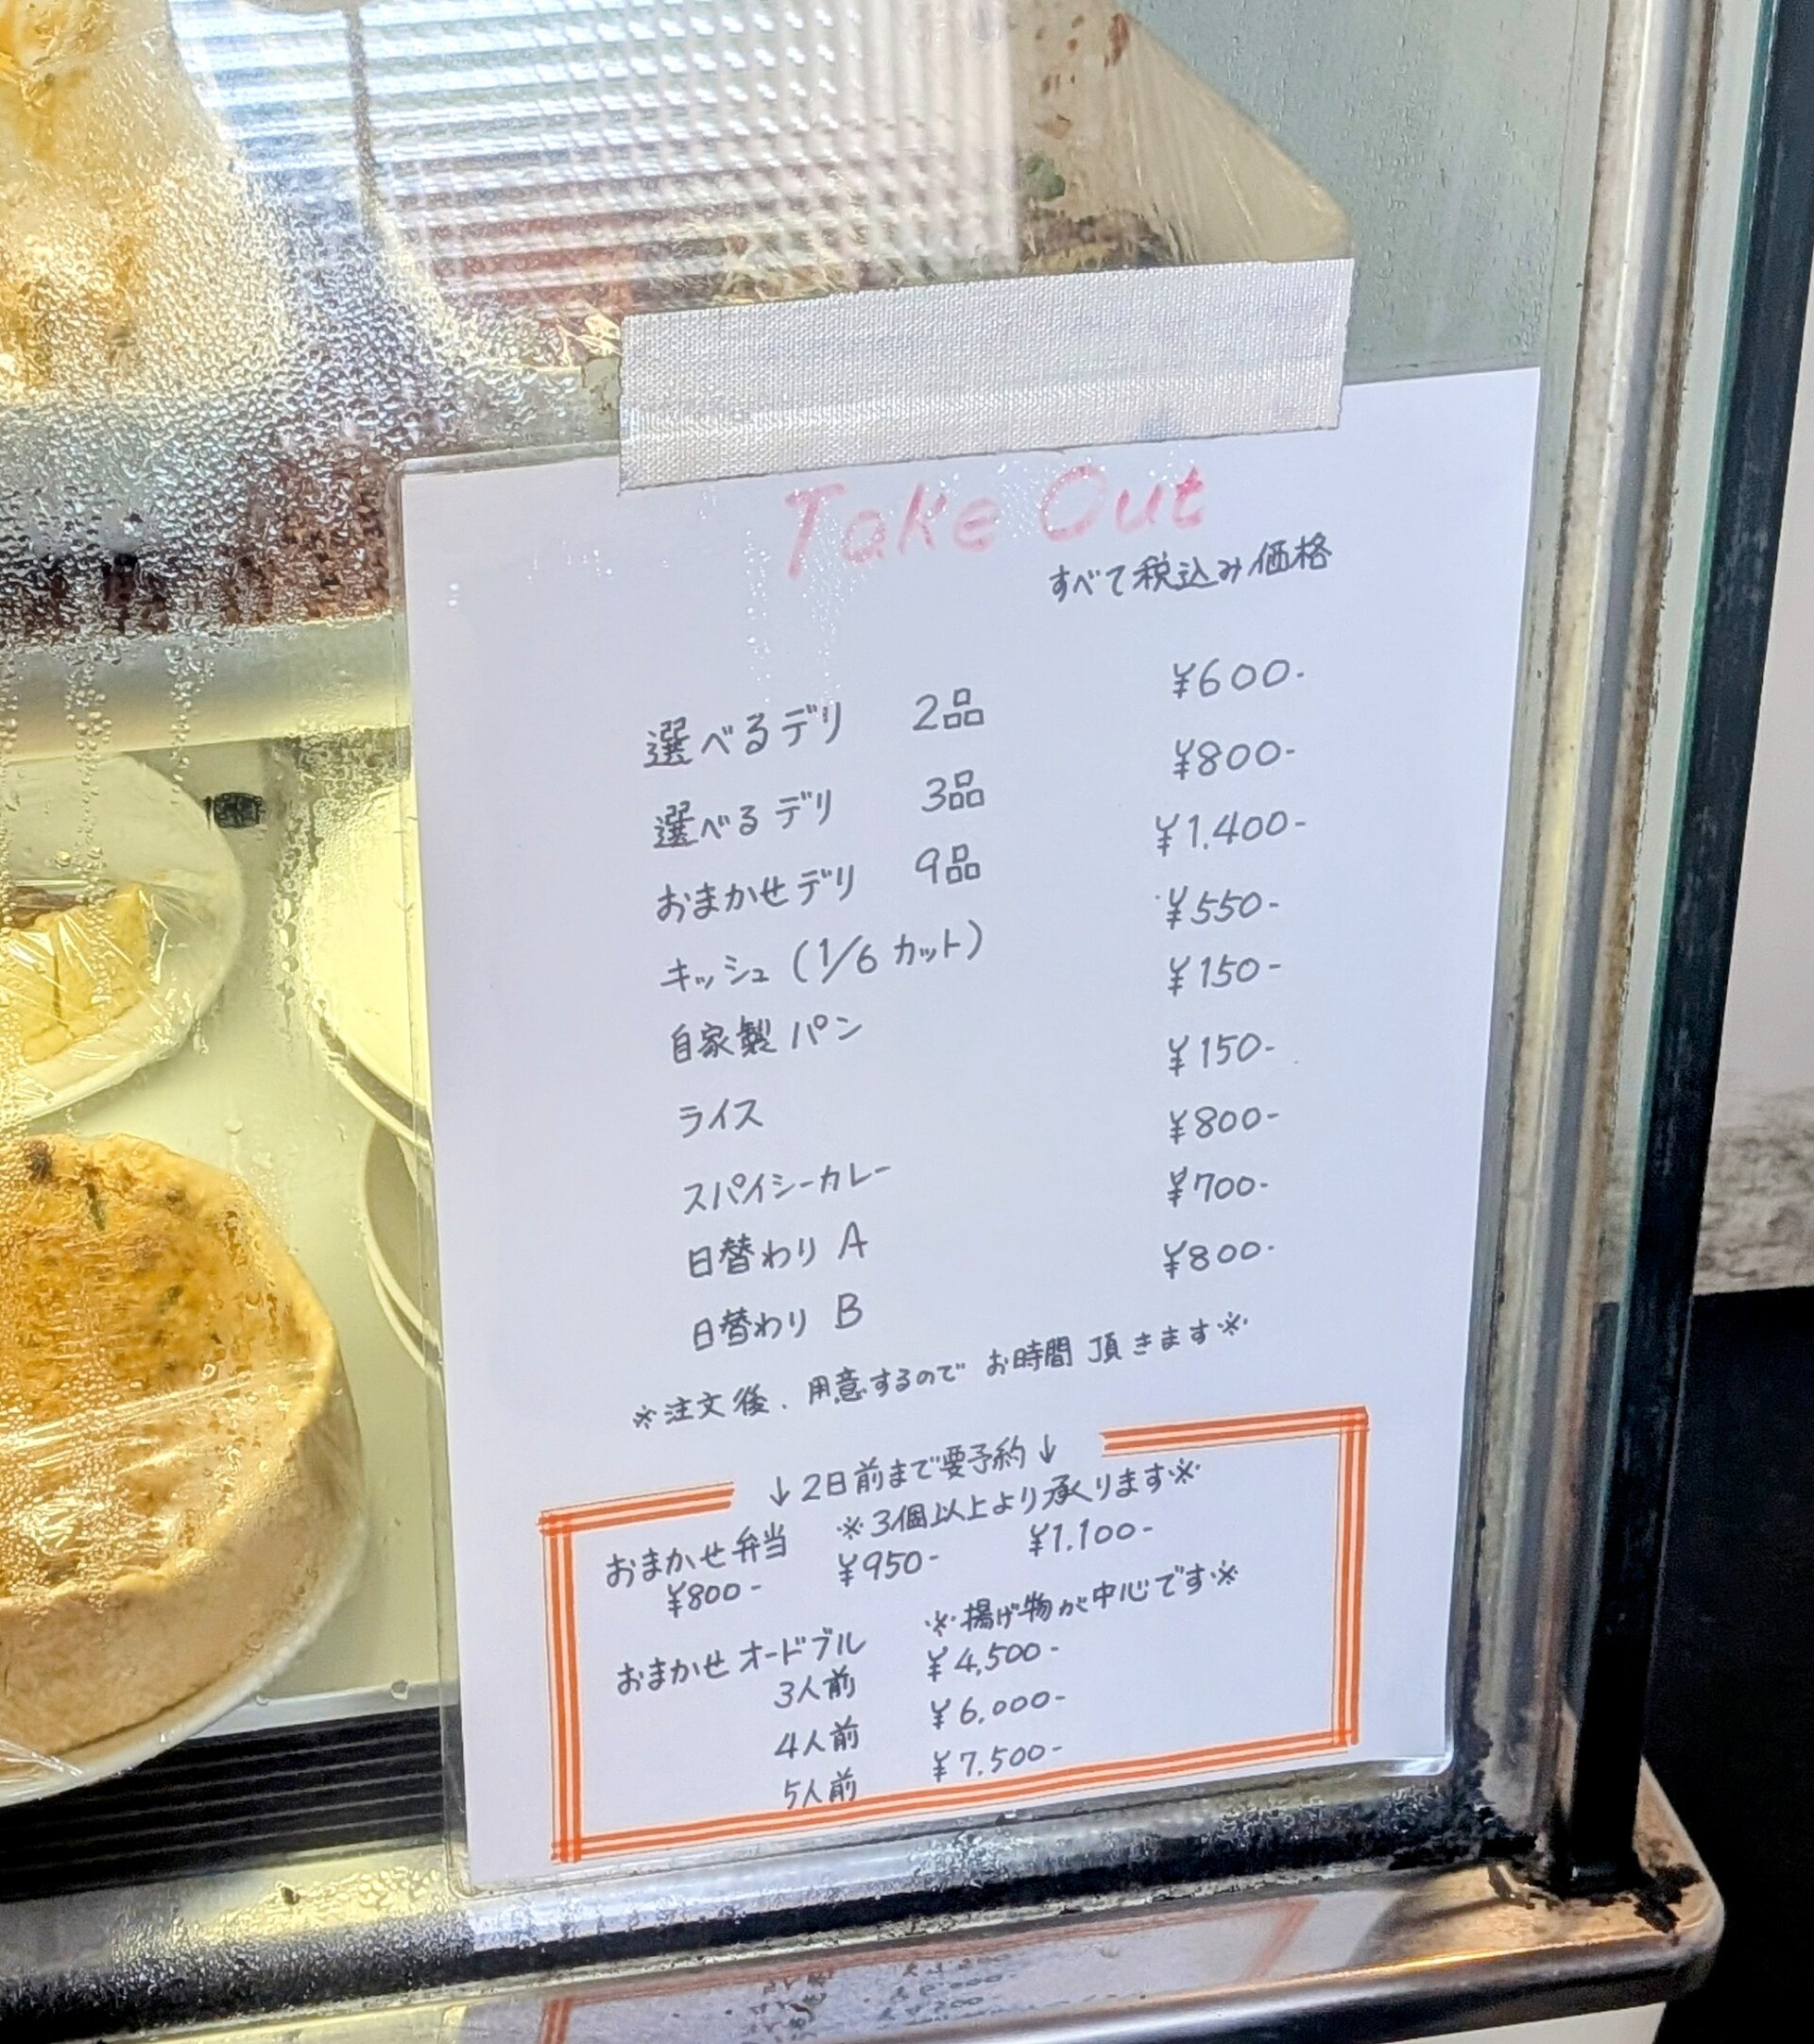 Take Out
すべて税込み価格
選べるデリ 2品 ¥600-
選べるデリ 3品 ¥800-
おまかせデリ 9品 ¥1,400-
キッシュ (1/6 カット) ¥550-
自家製パン ¥150-
ライス ¥150-
スパイシーカレー ¥800-
日替わり A ¥700-
日替わり B ¥800-
※注文後、用意するので お時間 頂きます※
↓2日前まで要予約↓
おまかせ弁当 ※3個以上より承ります※
¥800- ¥950- ¥1,100-
おまかせオードブル ※揚げ物が中心です※
3人前 ¥4,500-
4人前 ¥6,000-
5人前 ¥7,500-